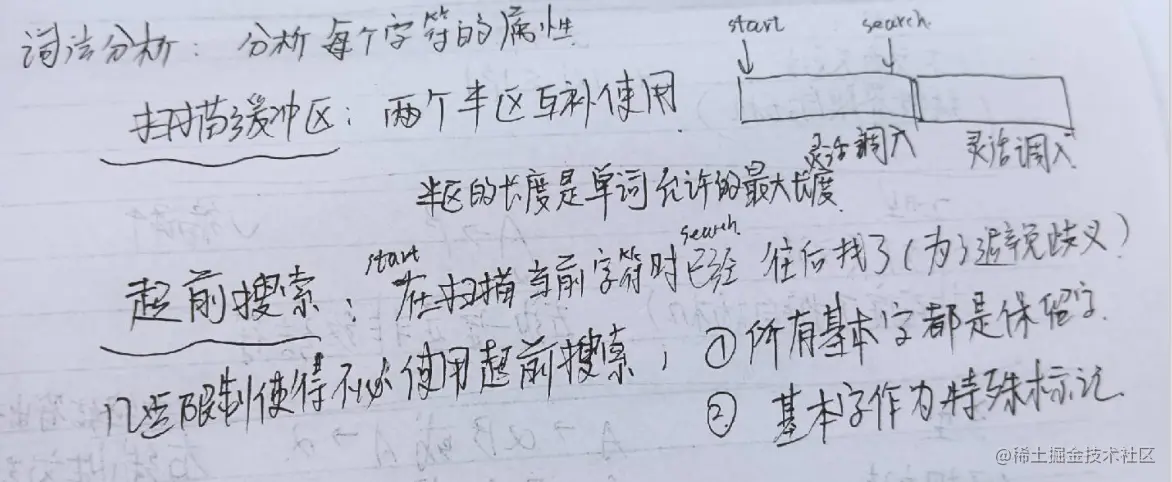 词法分析：分析每个字符的属性
start search
扫描缓冲区：两个半区互补使用
灵活调入 灵活调入
半区的长度是单词允许的最大长度
start search
超前搜索：在扫描当前字符时已经往后找了(为了避免歧义)
使得不必使用超前搜索；①所有基本字都是保留字
② 基本字作为特殊标记
@稀土掘金技术社区